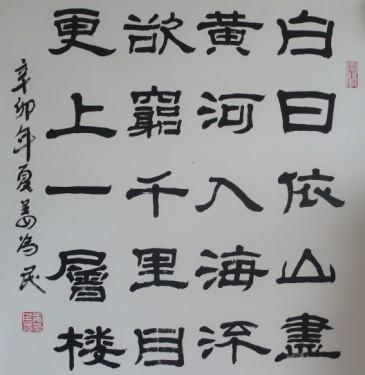 白日依山盡
黄河入海流
欲窮千里目
更上一層楼
辛卯年夏姜为民